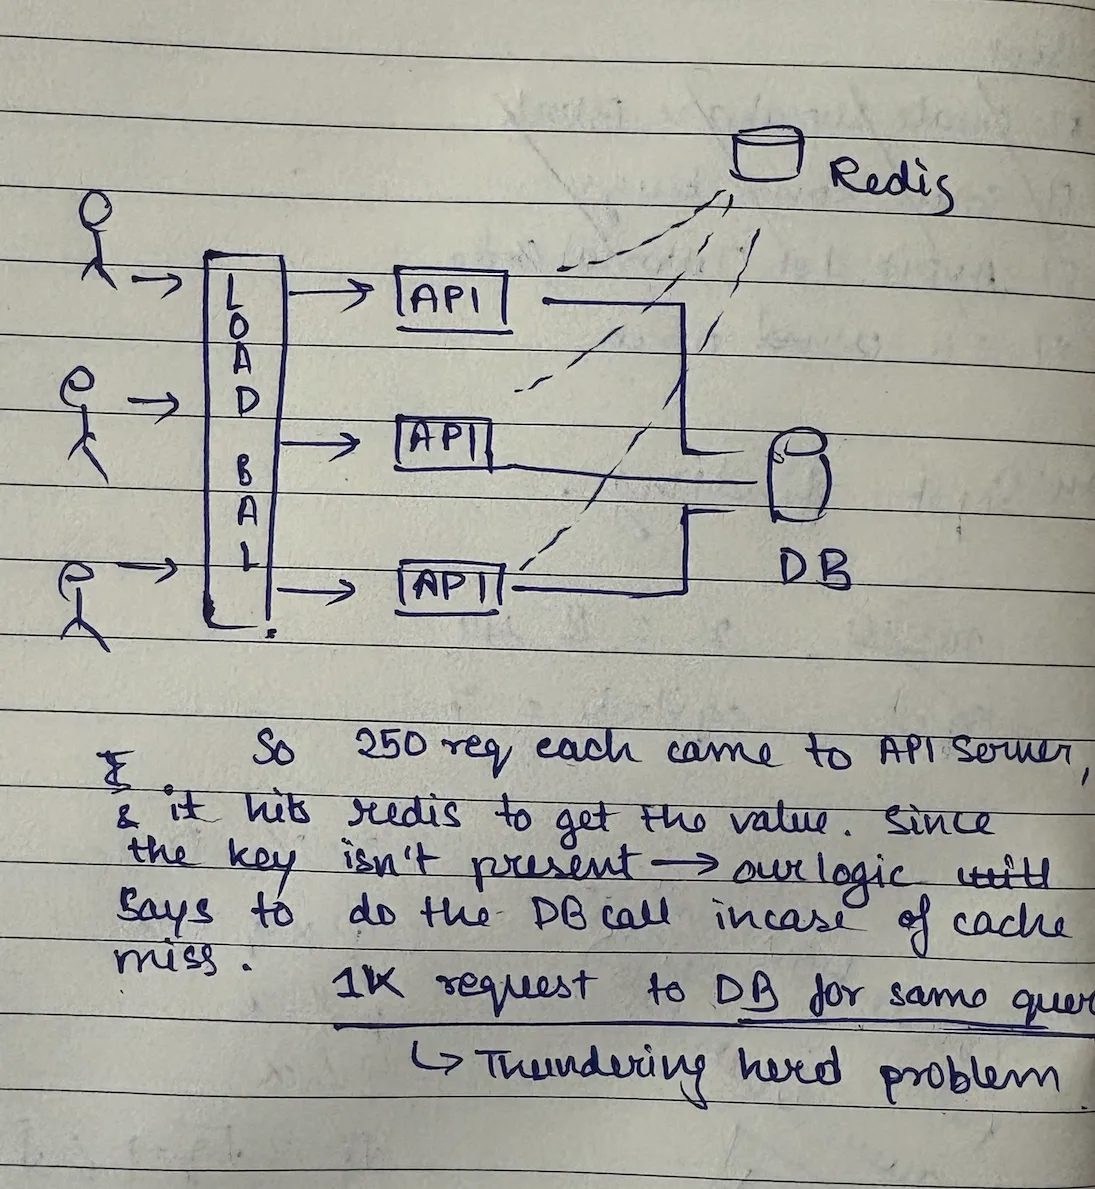 Redis
LOAD BAL
API
API
API
DB
So 250 req each came to API server,
& it hits redis to get the value. Since
the key isn't present → our logic will
says to do the DB call incase of cache
miss.
1K request to DB for same quer
↳ Thundering herd problem.